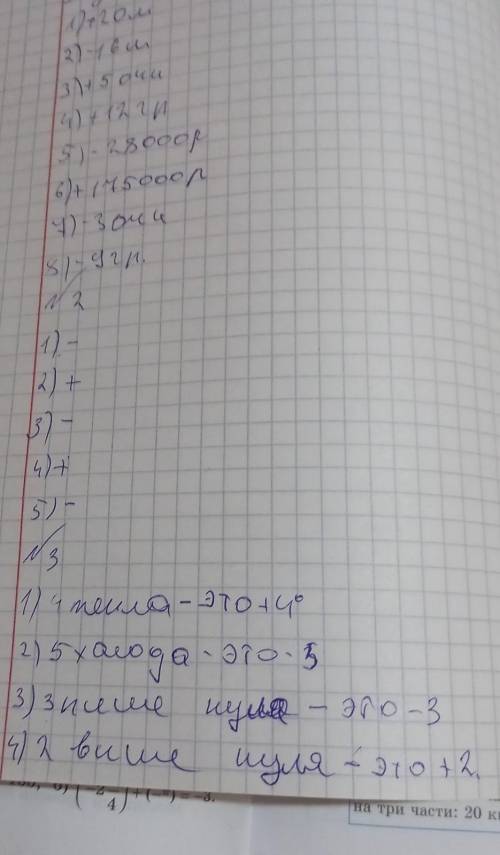 1) +20м
2) -16м
3) +5 очк
4) +12 гр
5) -28000р
6) +175000р
7) -3 очк
8) -9 гр.
№2
1) -
2) +
3) -
4) +
5) -
№3
1) 4 тепла - это +4°
2) 5 холода - это -5
3) 3 ниже нуля - это -3
4) 2 выше нуля - это +2.
на три части: 20 к